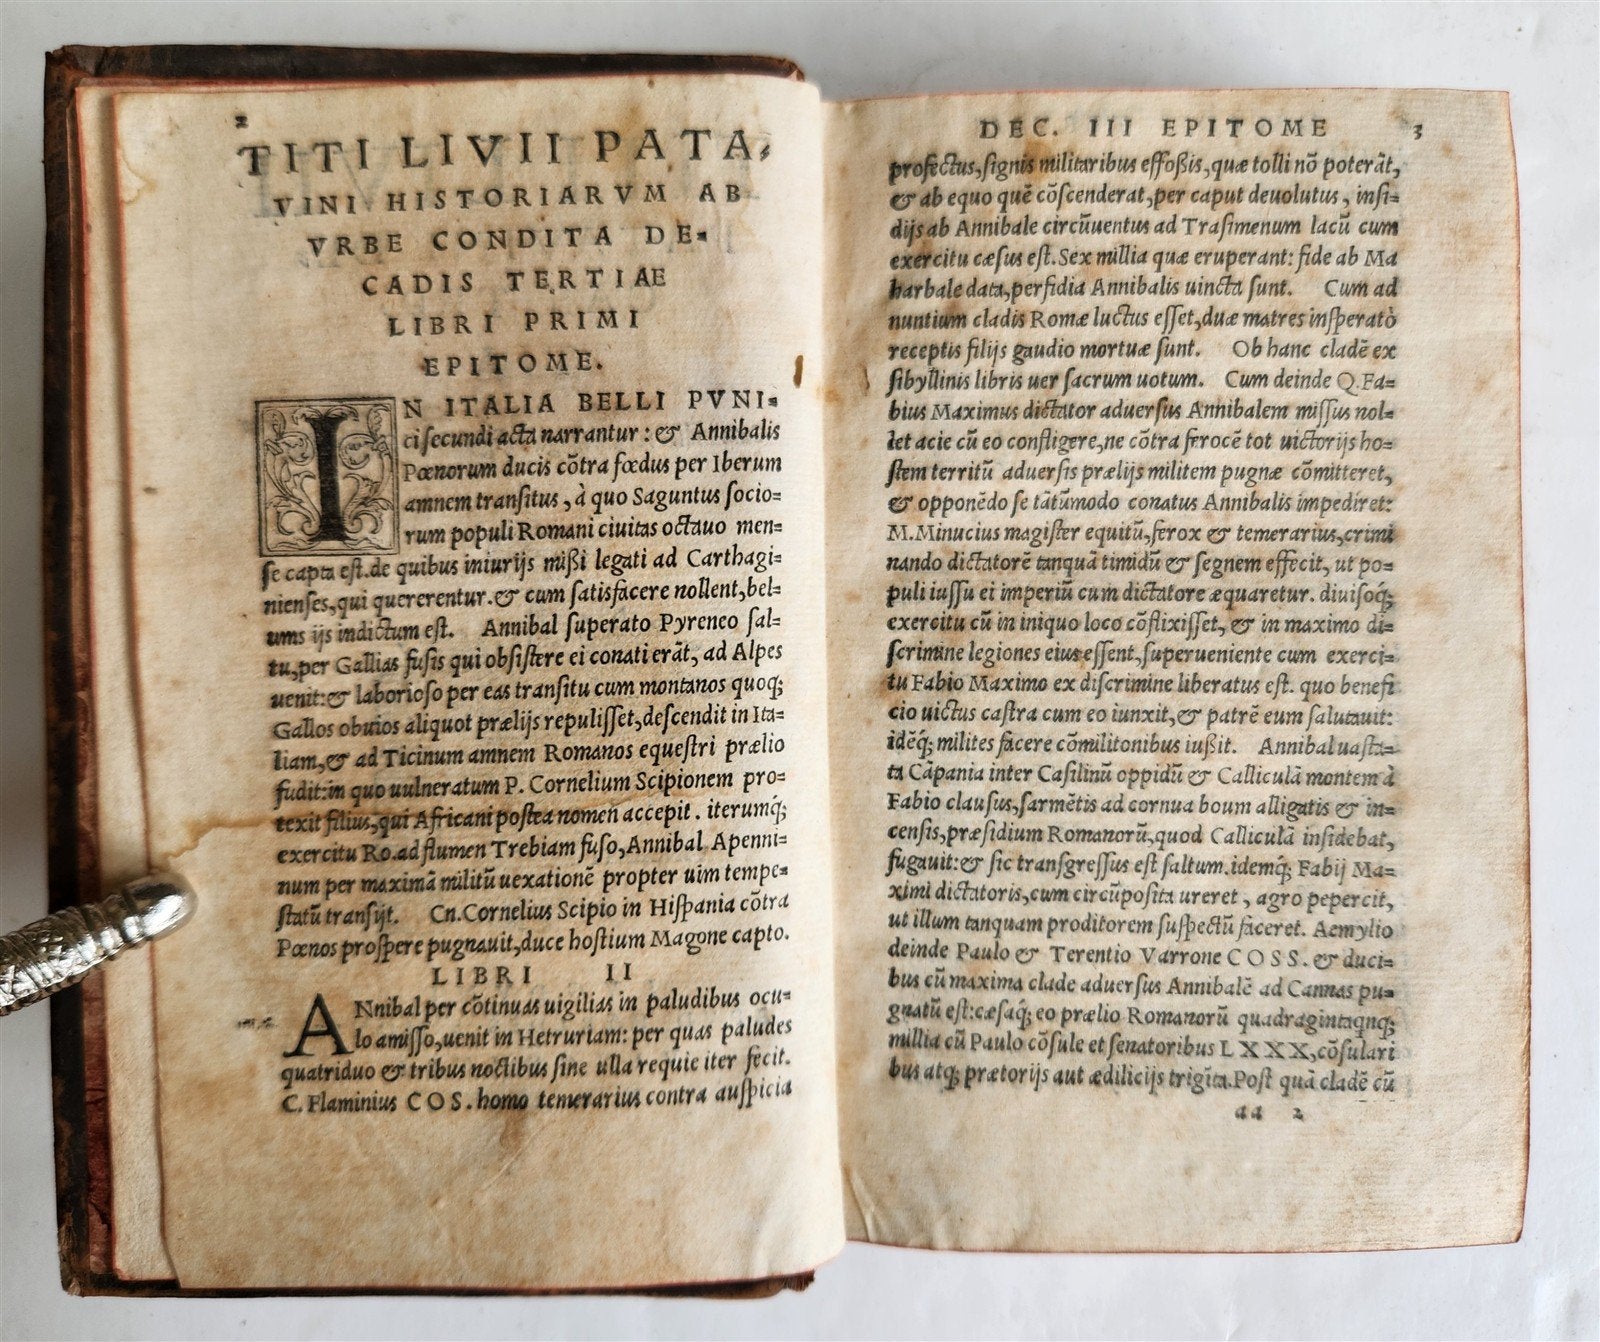 2
TITI LIVII PATA,
VINI HISTORIARVM AB
VRBE CONDITA DE=
CADIS TERTIAE
LIBRI PRIMI
EPITOME.
IN ITALIA BELLI PVNI=
ci ſecundi acta narrantur : & Annibalis
Pœnorum ducis cõtra fœdus per Iberum
amnem tranſitus, à quo Saguntus ſocio=
rum populi Romani ciuitas octauo men=
ſe capta eſt. de quibus iniurijs mißi legati ad Carthagi=
nienſes, qui quererentur. & cum ſatisfacere nollent, bel=
lum ijs indictum eſt. Annibal ſuperato Pyreneo ſal=
tu, per Gallias fuſis qui obſiſtere ei conati erãt, ad Alpes
uenit: & laborioſo per eas tranſitu cum montanos quoq;
Gallos obuios aliquot prælijs repuliſſet, deſcendit in Ita=
liam, & ad Ticinum amnem Romanos equeſtri prælio
fudit: in quo uulneratum P. Cornelium Scipionem pro=
texit filius, qui Africani poſtea nomen accepit. iterumq́;
exercitu Ro. ad flumen Trebiam fuſo, Annibal Apenni=
num per maximã militũ uexationẽ propter uim tempe=
ſtatũ tranſijt. Cn. Cornelius Scipio in Hiſpania cõtra
Pœnos proſpere pugnauit, duce hoſtium Magone capto.
LIBRI II
ANnibal per cõtinuas uigilias in paludibus ocu=
lo amiſſo, uenit in Hetruriam: per quas paludes
quatriduo & tribus noctibus ſine ulla requie iter fecit.
C. Flaminius COS. homo temerarius contra auſpicia
DEC. III EPITOME 3
profectus, ſignis militaribus effoßis, quæ tolli nõ poterãt,
& ab equo quẽ cõſcenderat, per caput deuolutus, inſi=
dijs ab Annibale circũuentus ad Traſimenum lacũ cum
exercitu cæſus eſt. Sex millia quæ eruperant: fide ab Ma
harbale data, perfidia Annibalis uincta ſunt. Cum ad
nuntium cladis Romæ luctus eſſet, duæ matres inſperatò
receptis filijs gaudio mortuæ ſunt. Ob hanc cladẽ ex
ſibyllinis libris uer ſacrum uotum. Cum deinde Q. Fa=
bius Maximus dictator aduerſus Annibalem miſſus nol=
let acie cũ eo confligere, ne cõtra ferocẽ tot uictorijs ho=
ſtem territũ aduerſis prælijs militem pugnæ cõmitteret,
& opponẽdo ſe tãtũmodo conatus Annibalis impediret:
M. Minucius magiſter equitũ, ferox & temerarius, crimi
nando dictatorẽ tanquã timidũ & ſegnem effecit, ut po=
puli iuſſu ei imperiũ cum dictatore æquaretur. diuiſoq́;
exercitu cũ in iniquo loco cõflixiſſet, & in maximo di=
ſcrimine legiones eius eſſent, ſuperueniente cum exerci=
tu Fabio Maximo ex diſcrimine liberatus eſt. quo benefi
cio uictus caſtra cum eo iunxit, & patrẽ eum ſalutauit:
idẽq́; milites facere cõmilitonibus iußit. Annibal uaſta=
ta Cãpania inter Caſilinũ oppidũ & Calliculã montem à
Fabio clauſus, ſarmẽtis ad cornua boum alligatis & in=
cenſis, præſidium Romanorũ, quod Calliculã inſidebat,
fugauit: & ſic tranſgreſſus eſt ſaltum. idemq́; Fabij Ma=
ximi dictatoris, cum circũpoſita ureret, agro pepercit,
ut illum tanquam proditorem ſuſpectũ faceret. Aemylio
deinde Paulo & Terentio Varrone COSS. & duci=
bus cũ maxima clade aduerſus Annibalẽ ad Cannas pu=
gnatũ eſt: cæſaq́; eo prælio Romanorũ quadragintaqnq;
millia cũ Paulo cõſule et ſenatoribus LXXX, cõſulari
bus atq; prætorijs aut ædilicijs trigĩta. Poſt quã cladẽ cũ
aa 2